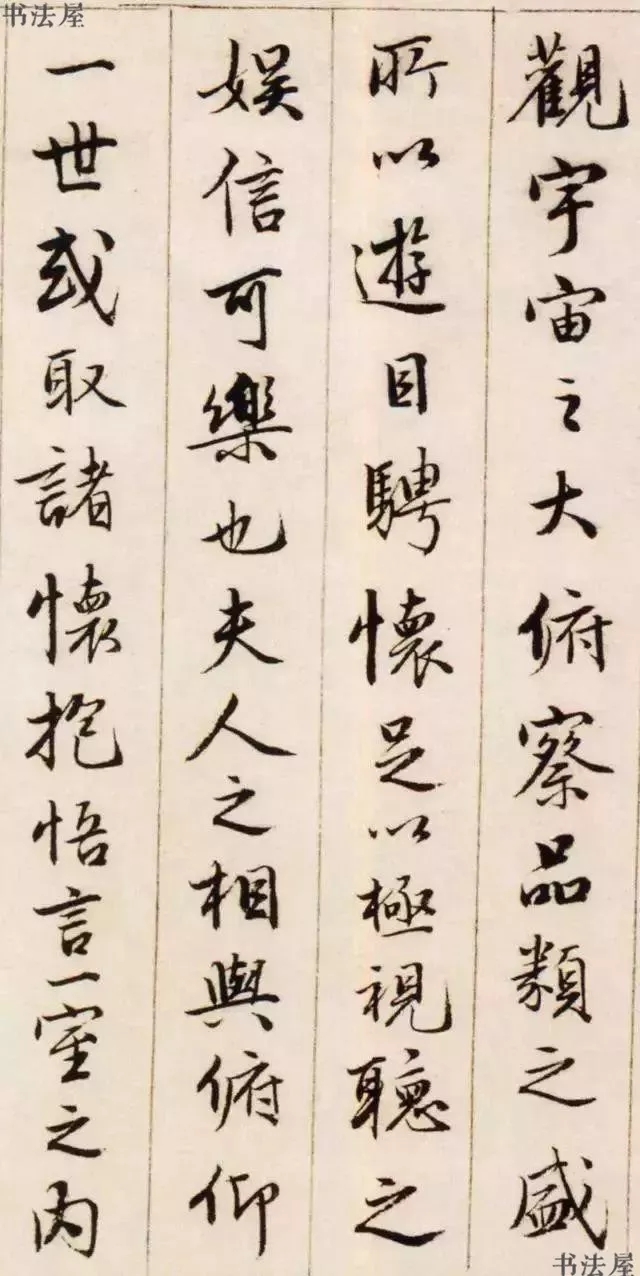 書法屋
觀宇宙之大俯察品類之盛
所以遊目騁懷足以極視聽之
娛信可樂也夫人之相與俯仰
一世或取諸懷抱悟言一室之內
书法屋